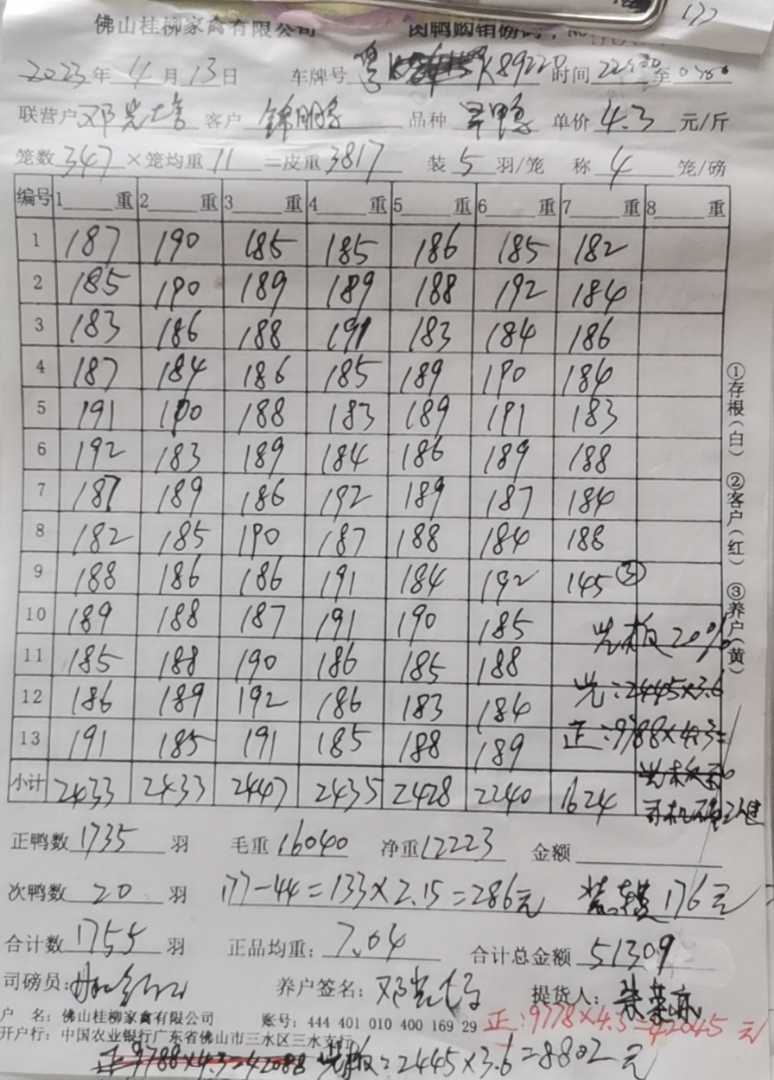 177
佛山桂柳家禽有限公司 肉鸭购销磅码
2023年4月13日 车牌号 K89220 时间 至
联营户 邓 客户 锦鹏 品种 鸭 单价 4.3 元/斤
笼数 347 ×笼均重 11 =皮重 3817 装 5 羽/笼 称 4 笼/磅
编号 1 重 2 重 3 重 4 重 5 重 6 重 7 重 8 重
1 187 190 185 185 186 185 182
2 185 190 189 189 188 192 184
3 183 186 188 191 183 184 186
4 187 184 186 185 189 190 184
5 191 190 188 183 189 191 183
6 192 183 189 184 186 189 188
7 187 189 186 192 189 187 184
8 182 185 190 187 188 184 188
9 188 186 186 191 184 192 145 ③
10 189 188 187 191 190 185 光板20%
11 185 188 190 186 185 188 光:2445×3.6
12 186 189 192 186 183 184 正:9788×4.3=
13 191 185 191 185 188 189
小计 2433 2433 2447 2435 2428 2240 1624
①存根(白) ②客户(红) ③养户(黄)
正鸭数 1735 羽 毛重 16040 净重 12223 金额
次鸭数 20 羽 177-44=133×2.15=286元 176元
合计数 1755 羽 正品均重: 7.04 合计总金额 51309
司磅员: 养户签名: 邓 提货人:
户 名: 佛山桂柳家禽有限公司 账号: 444 401 010 400 169 29 正:9778×4.3=42045元
开户行: 中国农业银行广东省佛山市三水区三水支行
正9788×4.3=42088 光板:2445×3.6=8802元